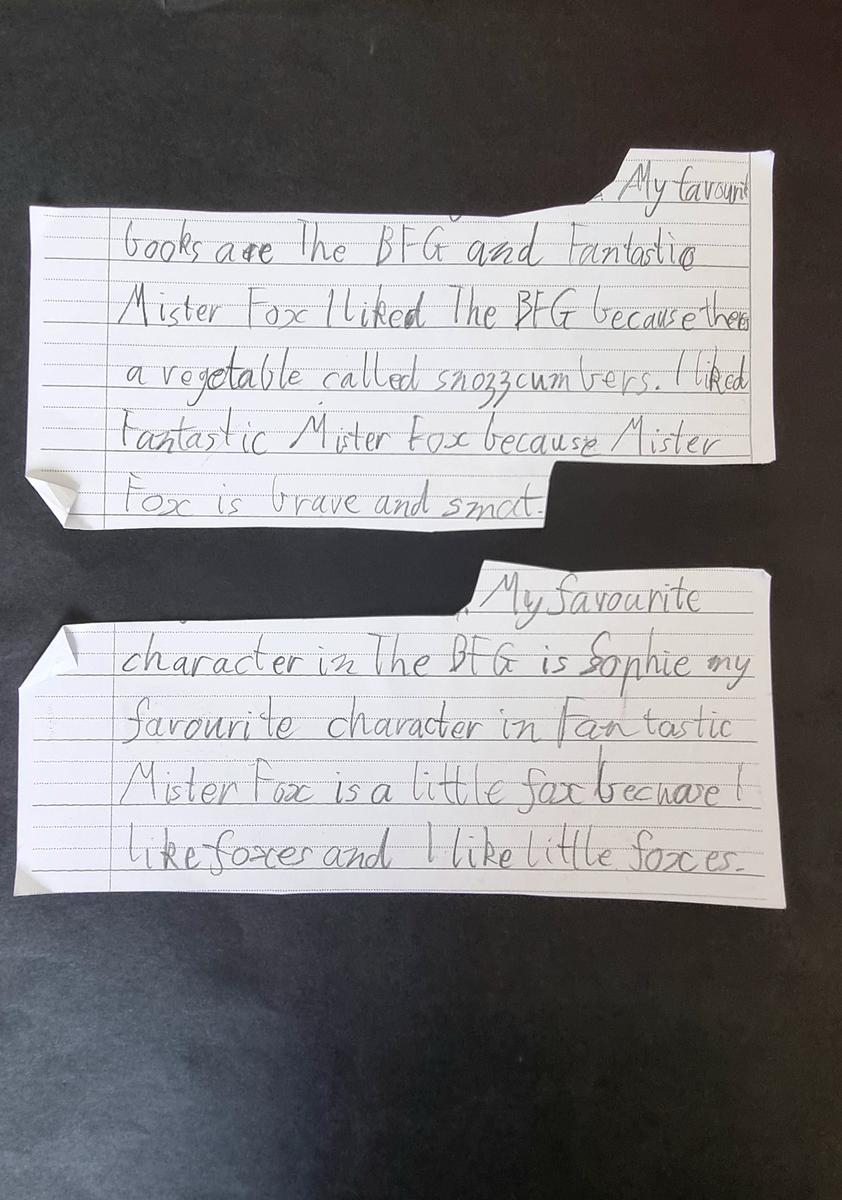 My favourit
books are The BFG and Fantastic
Mister Fox I liked The BFG because theres
a vegetable called snozzcumbers. I liked
Fantastic Mister Fox because Mister
Fox is brave and smat.
My favourite
character in The BFG is Sophie my
favourite character in Fantastic
Mister Fox is a little fox because I
like foxes and I like little foxes.